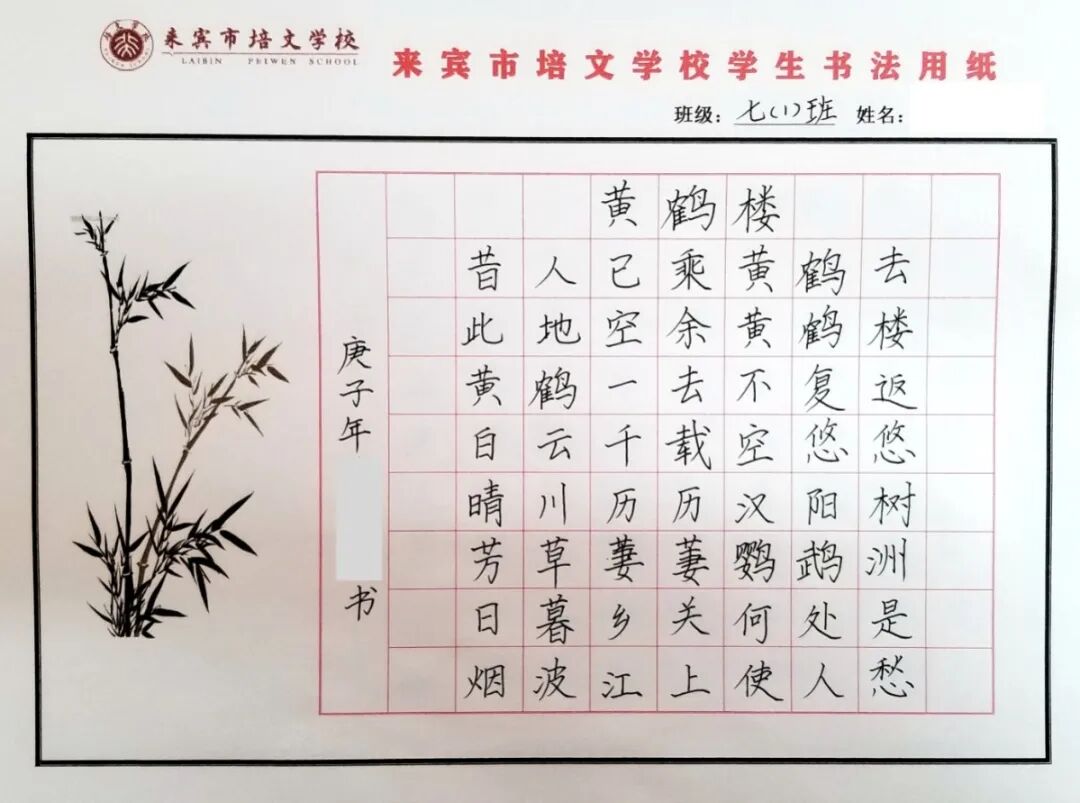 来宾市培文学校
LAIBIN PEIWEN SCHOOL
来宾市培文学校学生书法用纸
班级：七（1）班 姓名：
黄鹤楼
昔人已乘黄鹤去
此地空余黄鹤楼
黄鹤一去不复返
白云千载空悠悠
晴川历历汉阳树
芳草萋萋鹦鹉洲
日暮乡关何处是
烟波江上使人愁
庚子年
书